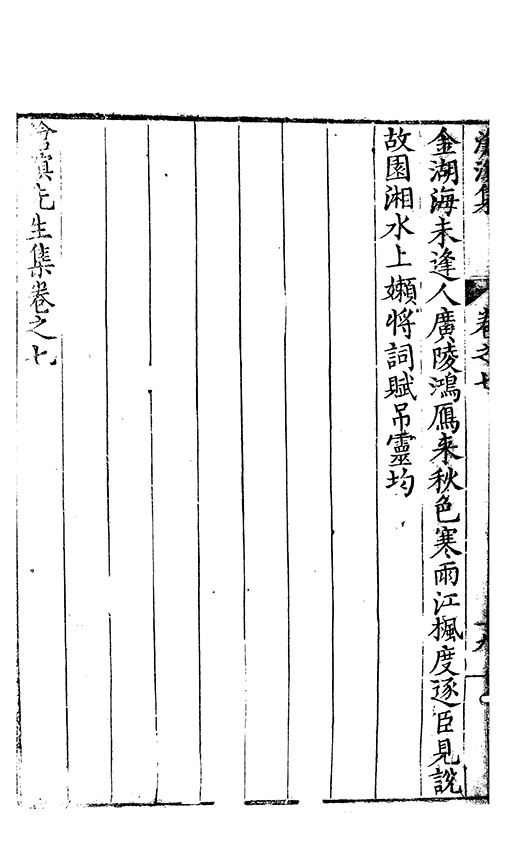 滄溟集 卷之七
金湖海未逢人廣陵鴻鴈来秋色寒雨江楓度逐臣見說
故園湘水上嬾將詞賦吊靈均
滄溟先生集卷之七